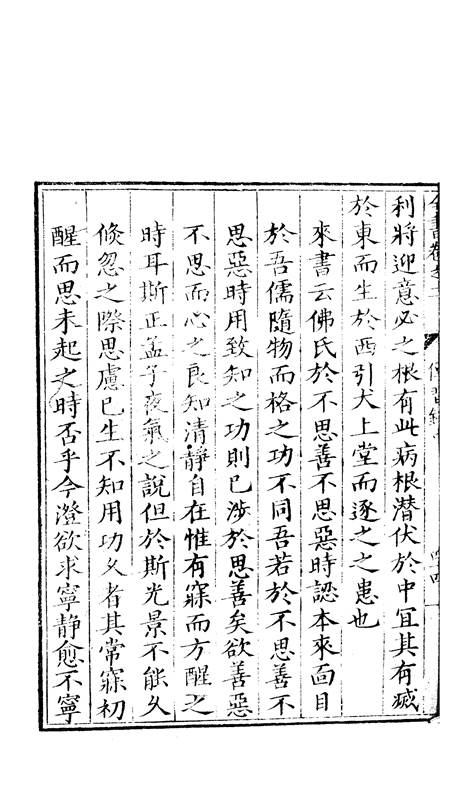 全書卷之二 傳習錄中 四十四
利將迎意必之根有此病根潛伏於中宜其有滅
於東而生於西引犬上堂而逐之之患也
來書云佛氏於不思善不思惡時認本來面目
於吾儒隨物而格之功不同吾若於不思善不
思惡時用致知之功則已涉於思善矣欲善惡
不思而心之良知清靜自在惟有寐而方醒之
時耳斯正孟子夜氣之說但於斯光景不能久
倏忽之際思慮已生不知用功久者其常寐初
醒而思未起之時否乎今澄欲求寧靜愈不寧